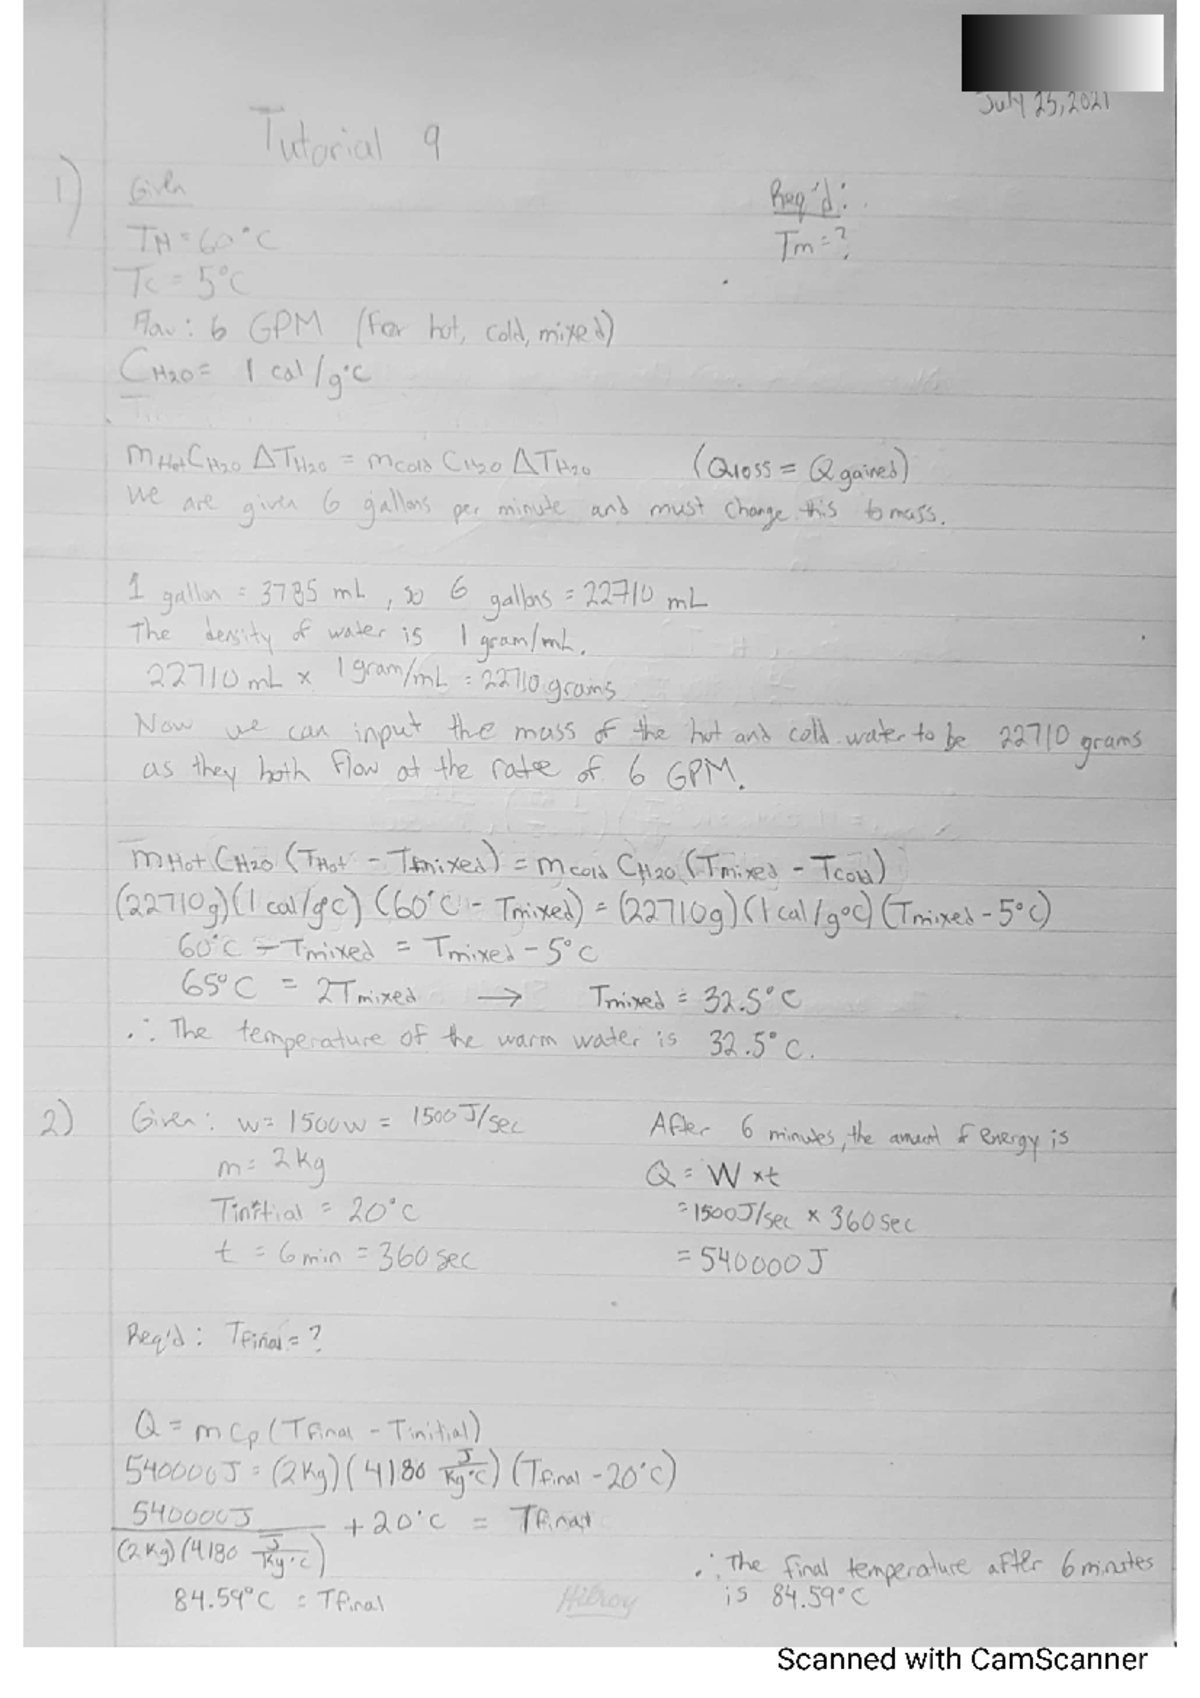 July 25, 2021
Tutorial 9
1) Given
Req'd:
TH = 60°C
Tm = ?
Tc = 5°C
Flow: 6 GPM (For hot, cold, mixed)
CH20 = 1 cal/g°C
mHot CH20 ΔTH20 = mcold CH20 ΔTH20 (Qloss = Qgained)
We are given 6 gallons per minute and must change this to mass.
1 gallon = 3785 mL, so 6 gallons = 22710 mL
The density of water is 1 gram/mL.
22710 mL × 1 gram/mL = 22710 grams
Now we can input the mass of the hot and cold water to be 22710 grams
as they both flow at the rate of 6 GPM.
mHot CH20 (THot - Tmixed) = mcold CH20 (Tmixed - Tcold)
(22710g)(1 cal/g°C)(60°C - Tmixed) = (22710g)(1 cal/g°C)(Tmixed - 5°C)
60°C - Tmixed = Tmixed - 5°C
65°C = 2Tmixed → Tmixed = 32.5°C
∴ The temperature of the warm water is 32.5°C.
2) Given: w = 1500w = 1500 J/sec
m = 2 kg
Tinitial = 20°C
t = 6 min = 360 sec
After 6 minutes, the amount of energy is
Q = W × t
= 1500 J/sec × 360 sec
= 540000 J
Req'd: Tfinal = ?
Q = mCp (Tfinal - Tinitial)
540000J = (2Kg)(4180 J/Kg°C)(Tfinal - 20°C)
540000J / (2Kg)(4180 J/Kg°C) + 20°C = Tfinal
84.59°C = Tfinal
∴ The final temperature after 6 minutes
is 84.59°C
Hilroy
Scanned with CamScanner